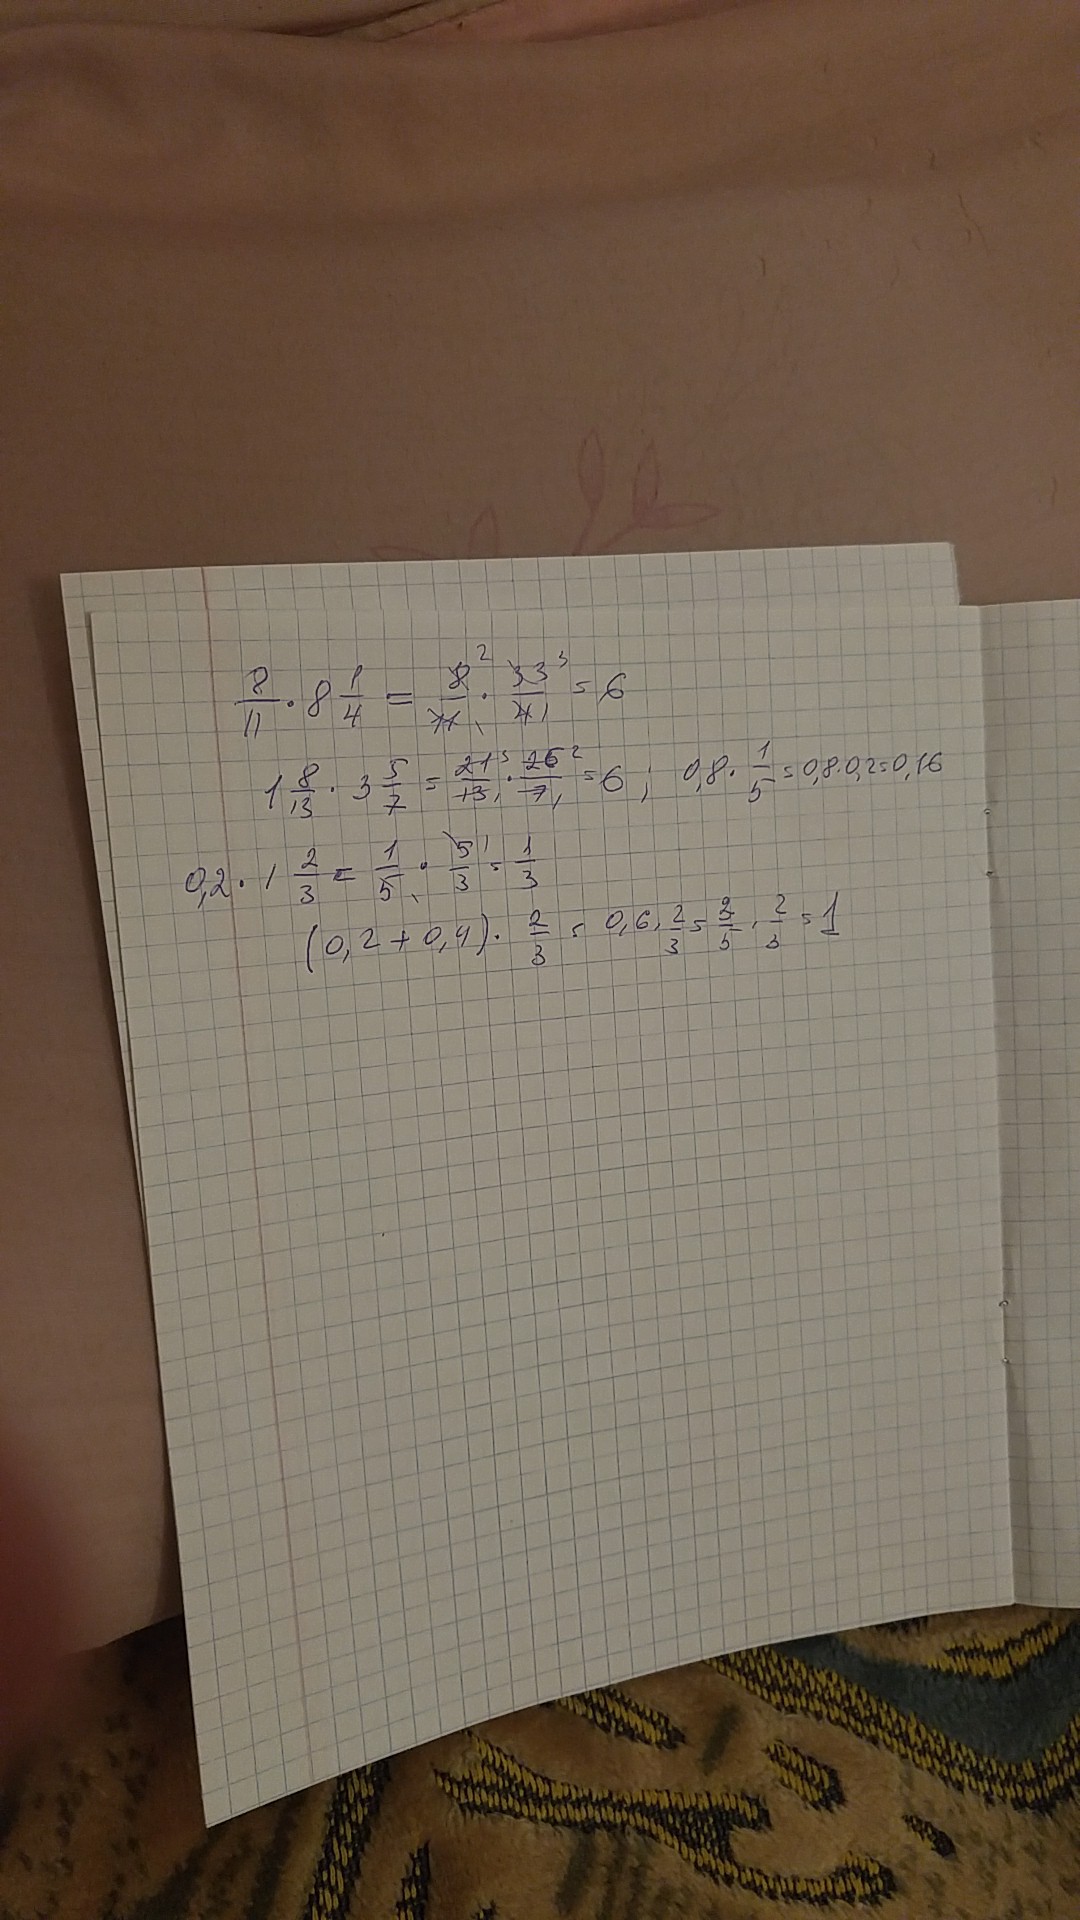 8/11 · 8 1/4 = 8²/11₁ · 33³/4₁ = 6
1 8/13 · 3 5/7 = 21³/13₁ · 26²/7₁ = 6 ; 0,8 · 1/5 = 0,8 · 0,2 = 0,16
0,2 · 1 2/3 = 1/5₁ · 5¹/3 = 1/3
(0,2 + 0,4) · 2/3 = 0,6 · 2/3 = 3/5 · 2/3 = 1